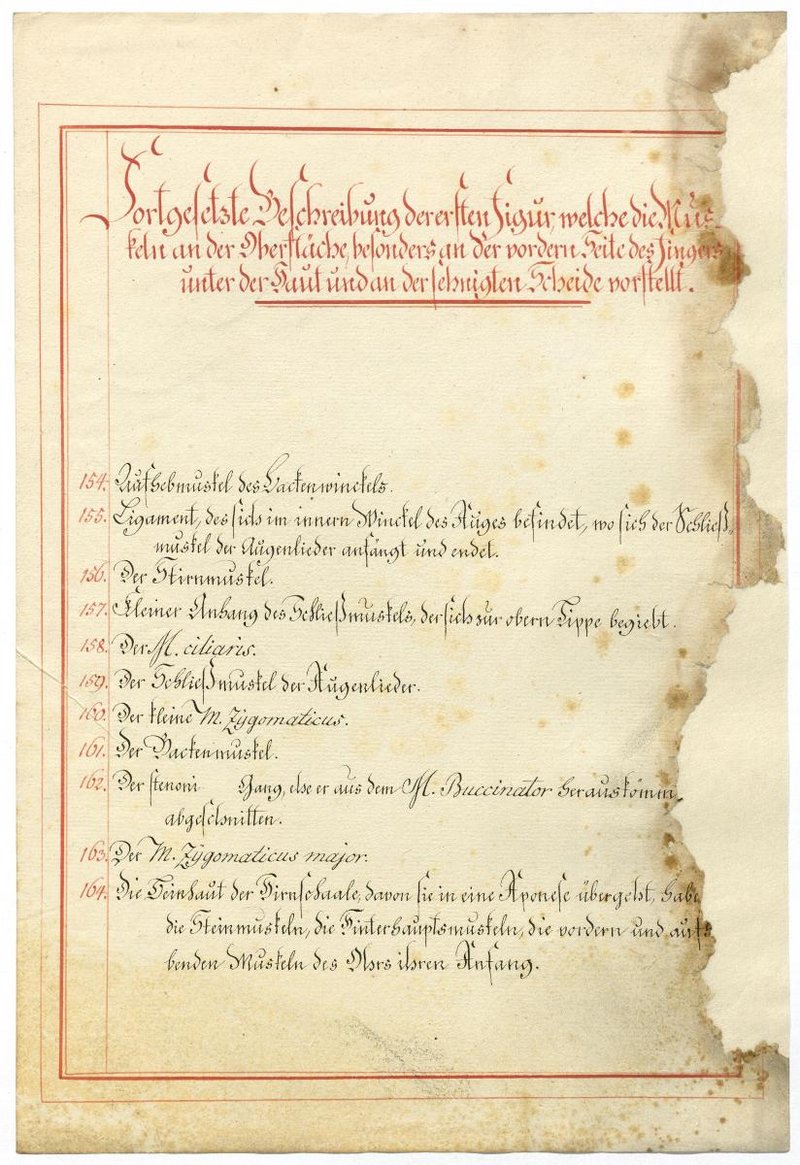 Fortgesetzte Beschreibung der ersten Figur, welche die Mus-
keln an der Oberfläche, besonders an der vordern Seite des Fingers
unter der Haut und an der sehnigten Scheide vorstellt.
154. Aufhebmuskel des Backenwinckels.
155. Ligament, des sich im innern Winckel des Auges befindet, wo sich der Schließ-
muskel der Augenlieder anfängt und endet.
156. Der Stirnmuskel.
157. Kleiner Anhang des Schließmuskels, der sich zur obern Lippe begiebt.
158. Der M. ciliaris.
159. Der Schließmuskel der Augenlieder.
160. Der kleine M. Zygomaticus.
161. Der Backenmuskel.
162. Der stenoni Gang, ehe er aus dem M. Buccinator herauskömm
abgeschnitten.
163. Der M. Zygomaticus major.
164. Die Beinhaut der Hirnschaale, davon sie in eine übergeht, habe
die Steinmuskeln, die Hinterhauptsmuskeln, die vordern und aufh
benden Muskeln des Ohrs ihren Anfang.